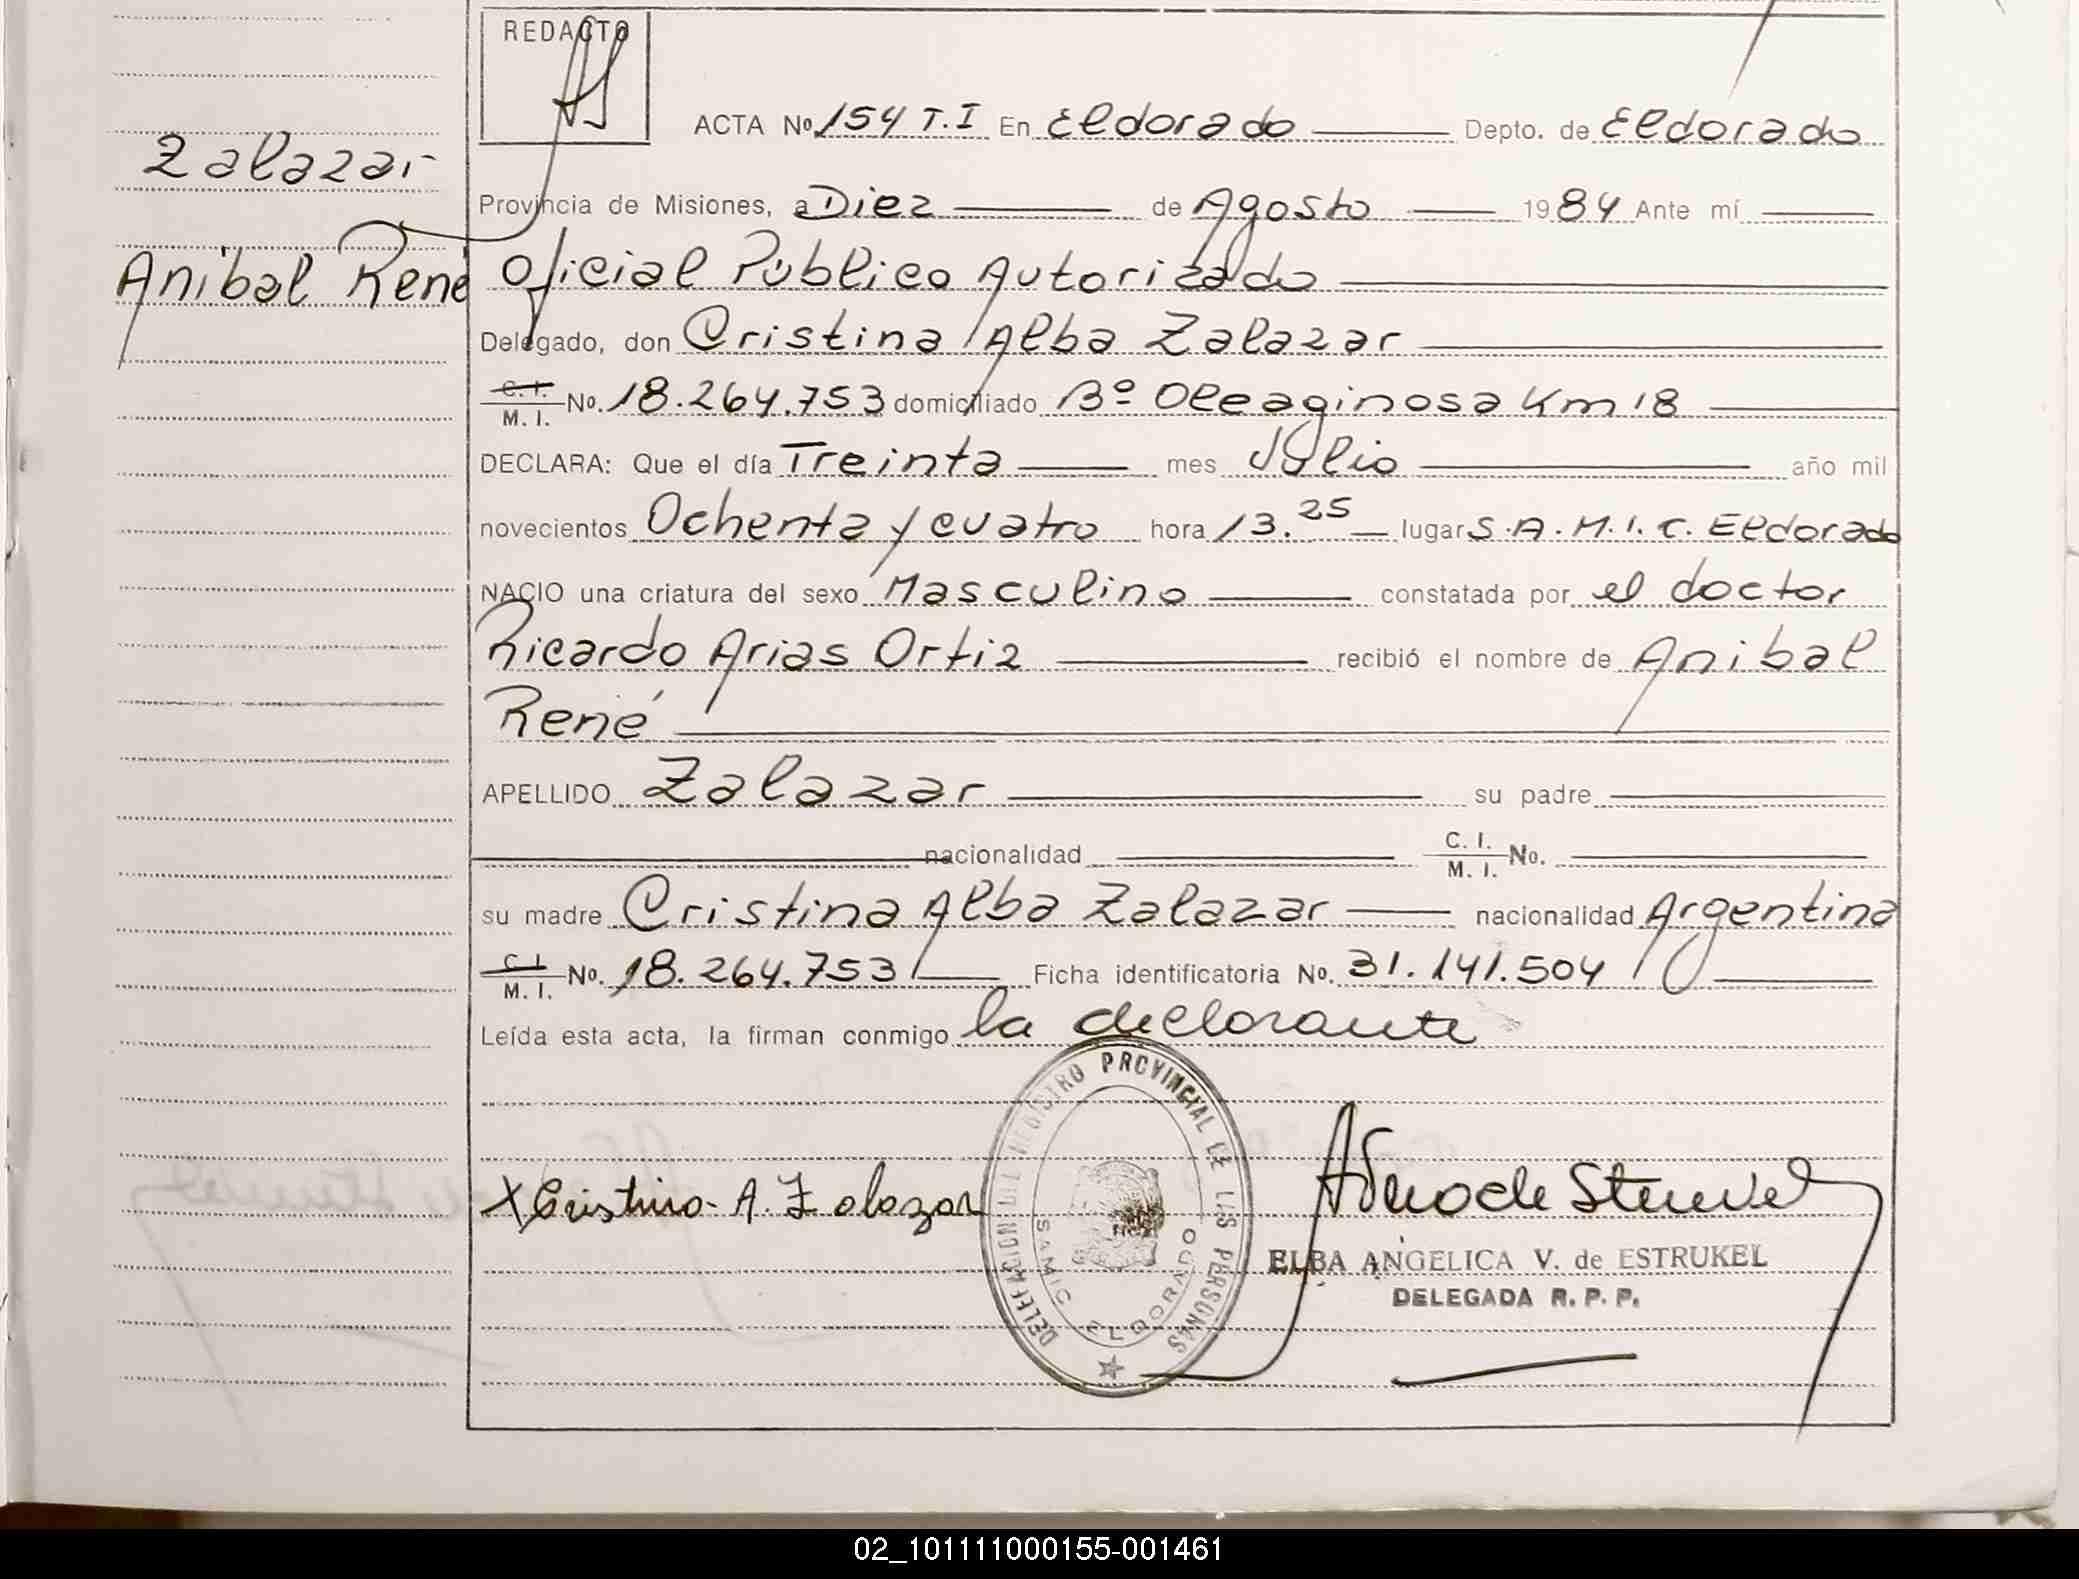 REDACTO
ACTA Nº 154 T.I En Eldorado Depto. de Eldorado
Zalazar
Provincia de Misiones, a Diez de Agosto 1984 Ante mí
Anibal René
Oficial Público Autorizado
Delegado, don Cristina Alba Zalazar
C. I.
M. I. No. 18.264.753 domiciliado Bº Oleaginosa Km 18
DECLARA: Que el día Treinta mes Julio año mil
novecientos Ochenta y cuatro hora 13.25 lugar S.A.M.I.C. Eldorado
NACIO una criatura del sexo Masculino constatada por el doctor
Ricardo Arias Ortiz recibió el nombre de Anibal
René
APELLIDO Zalazar su padre
nacionalidad C. I.
M. I. No.
su madre Cristina Alba Zalazar nacionalidad Argentina
C. I.
M. I. No. 18.264.753 Ficha identificatoria No. 31.141.504
Leída esta acta, la firman conmigo la declarante
DELEGACION DEL REGISTRO PROVINCIAL DE LAS PERSONAS
SAMIC ELDORADO
X Cristina A. Zalazar
ELBA ANGELICA V. de ESTRUKEL
DELEGADA R. P. P.
02_101111000155-001461